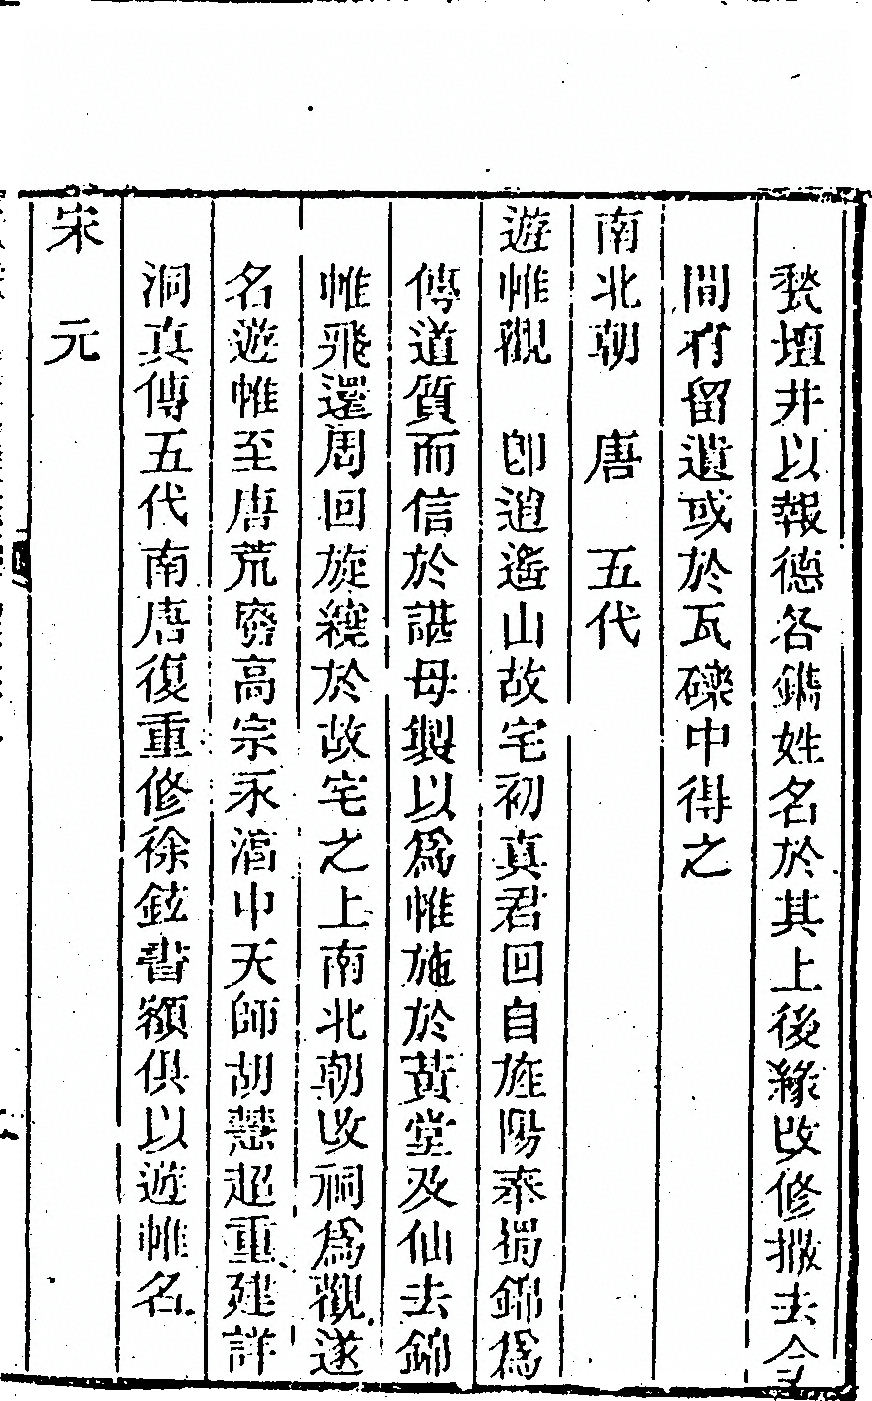 甃壇井以報德各鐫姓名於其上後緣改修撤去今
間有留遺或於瓦礫中得之
南北朝　唐　五代
遊帷觀　卽逍遙山故宅初真君回自旌陽奉蜀錦為
傳道質而信於諶母製以為帷施於黃堂及仙去錦
帷飛還周回旋繞於故宅之上南北朝改祠為觀遂
名遊帷至唐荒廢高宗永淳中天師胡慧超重建詳
洞真傳五代南唐復重修徐鉉書額俱以遊帷名
宋　元